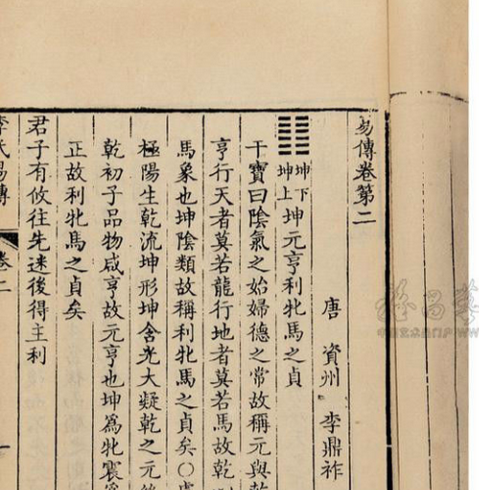 易傳卷第二
唐 資州 李鼎祚
䷁ 坤下坤上 坤元亨利牝馬之貞
干寶曰陰氣之始婦德之常故稱元與乾
亨行天者莫若龍行地者莫若馬故乾
馬象也坤陰類故稱利牝馬之貞矣○虞
極陽生乾流坤形坤含光大凝乾之元
乾初子品物咸亨故元亨也坤爲牝震爲
正故利牝馬之貞矣
君子有攸往先迷後得主利
李氏易傳 卷二